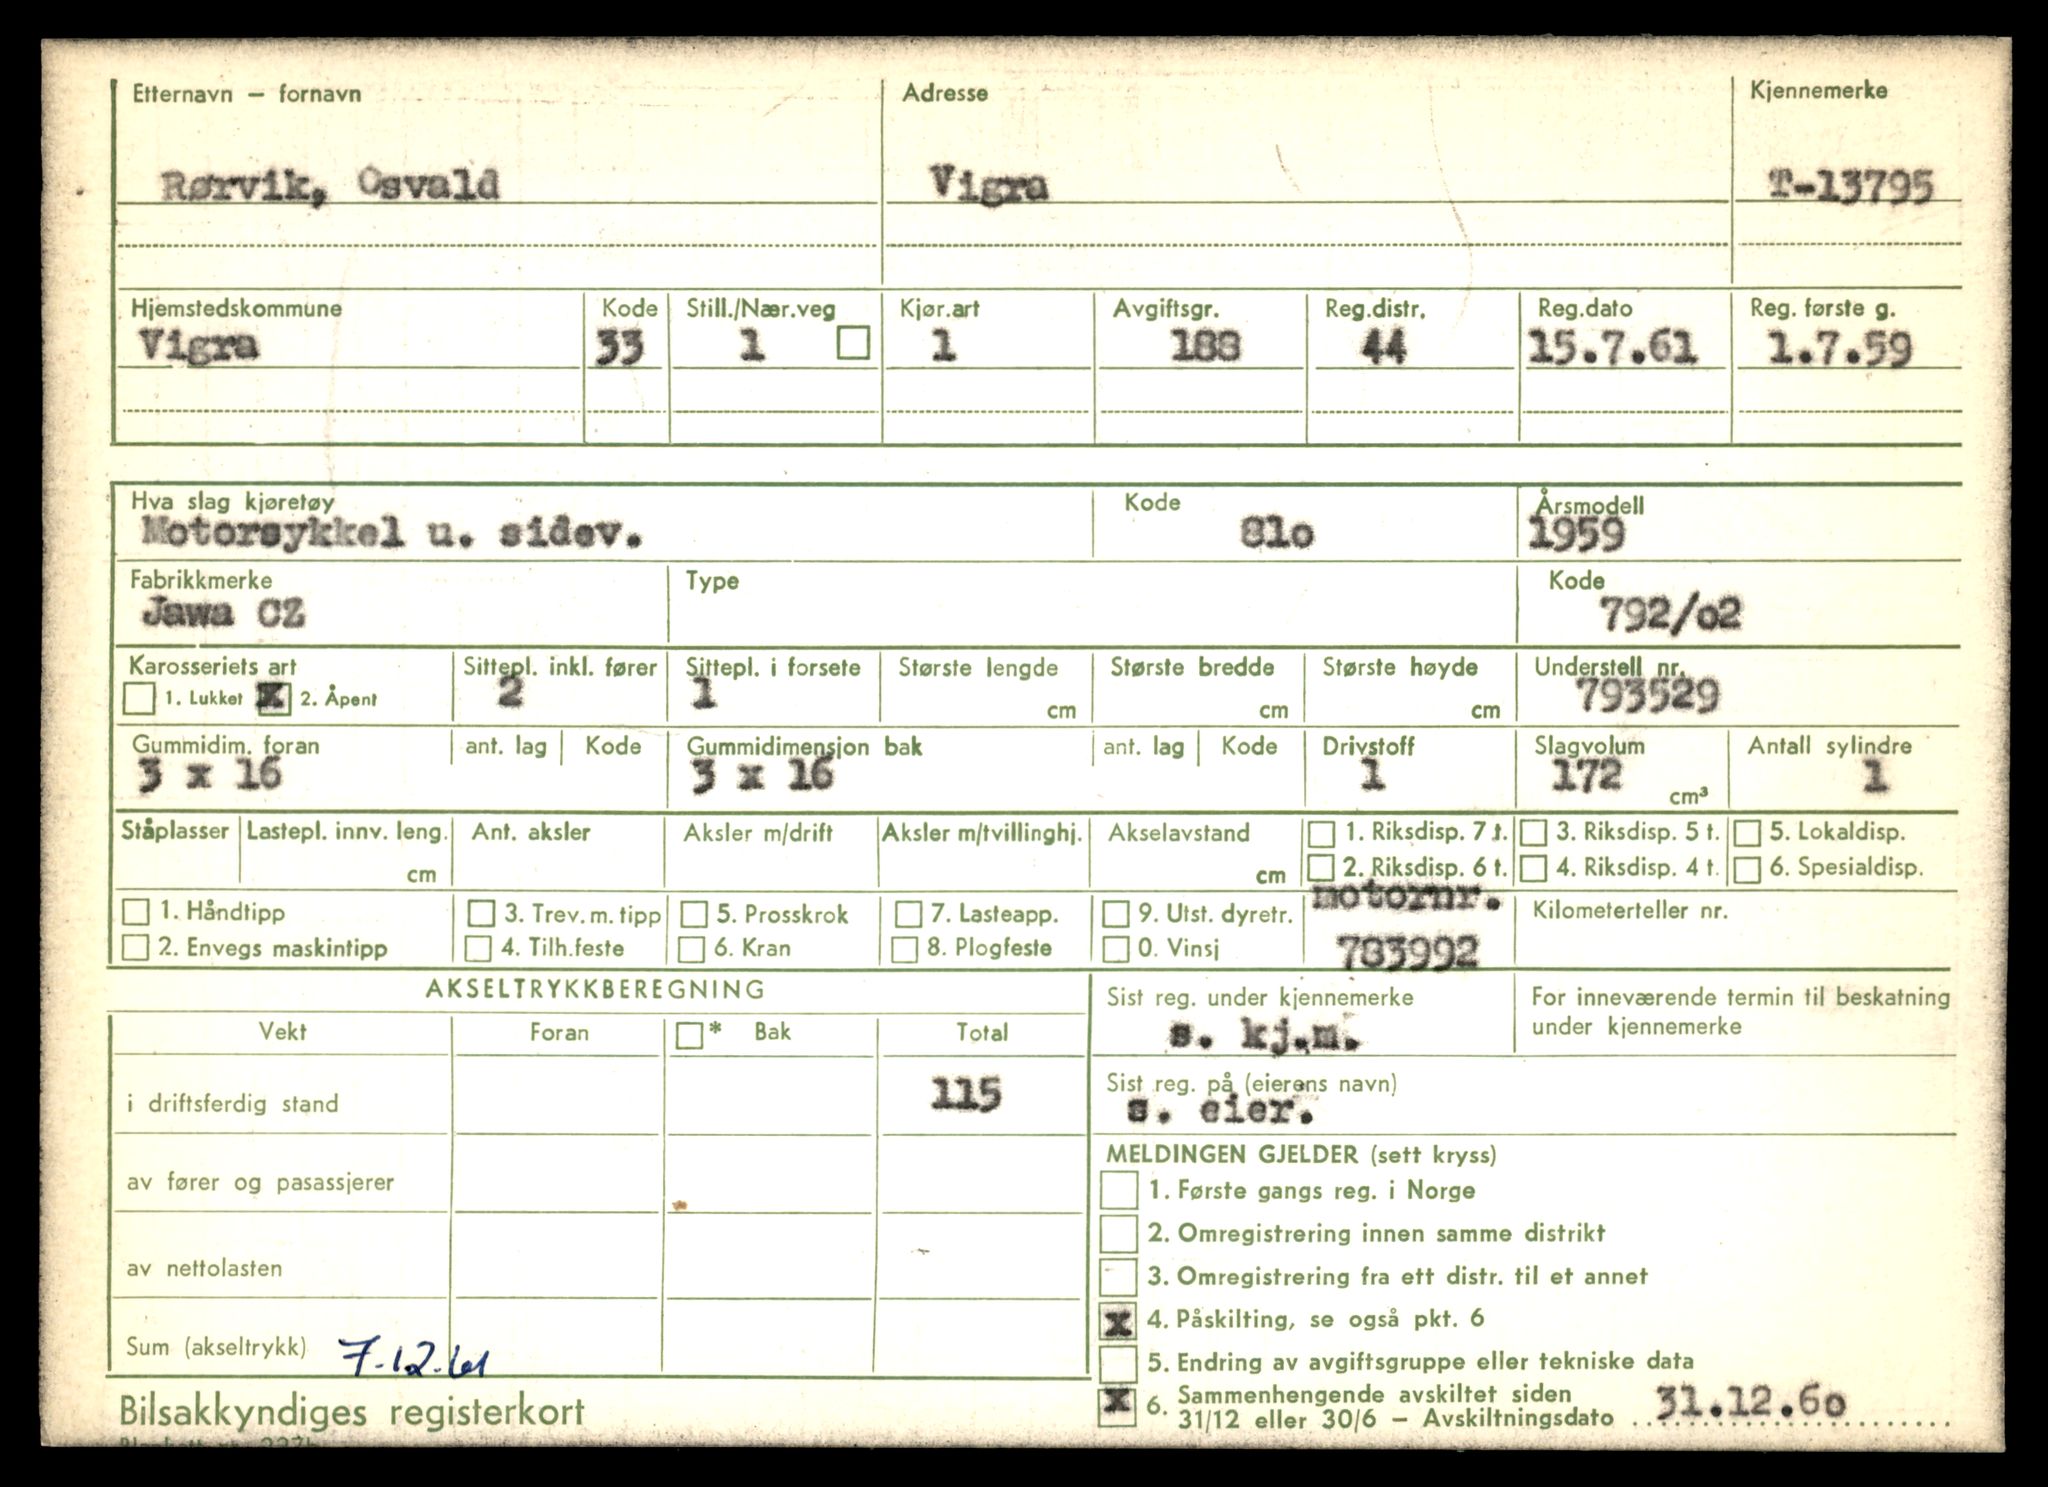 Etternavn – fornavn Adresse Kjennemerke
Rørvik, Osvald Vigra T-13795
Hjemstedskommune Kode Still./Nær.veg Kjør.art Avgiftsgr. Reg.distr. Reg.dato Reg. første g.
Vigra 33 1 1 188 44 15.7.61 1.7.59
Hva slag kjøretøy Kode Årsmodell
Motorsykkel u. sidev. 81o 1959
Fabrikkmerke Type Kode
Jawa CZ 792/o2
Karosseriets art Sittepl. inkl. fører Sittepl. i forsete Største lengde Største bredde Største høyde Understell nr.
1. Lukket x 2. Åpent 2 1 cm cm cm 793529
Gummidim. foran ant. lag Kode Gummidimensjon bak ant. lag Kode Drivstoff Slagvolum Antall sylindre
3 x 16 3 x 16 1 172 cm³ 1
Ståplasser Lastepl. innv. leng. Ant. aksler Aksler m/drift Aksler m/tvillinghj. Akselavstand 1. Riksdisp. 7 t. 3. Riksdisp. 5 t. 5. Lokaldisp.
cm cm 2. Riksdisp. 6 t. 4. Riksdisp. 4 t. 6. Spesialdisp.
1. Håndtipp 3. Trev. m. tipp 5. Prosskrok 7. Lasteapp. 9. Utst. dyretr. motornr. Kilometerteller nr.
2. Envegs maskintipp 4. Tilh.feste 6. Kran 8. Plogfeste 0. Vinsj 783992
AKSELTRYKKBEREGNING Sist reg. under kjennemerke For inneværende termin til beskatning
under kjennemerke
Vekt Foran * Bak Total s. kj.m.
i driftsferdig stand 115 Sist reg. på (eierens navn)
s. eier.
MELDINGEN GJELDER (sett kryss)
av fører og pasassjerer 1. Første gangs reg. i Norge
2. Omregistrering innen samme distrikt
av nettolasten 3. Omregistrering fra ett distr. til et annet
x 4. Påskilting, se også pkt. 6
Sum (akseltrykk) 7.12.61 5. Endring av avgiftsgruppe eller tekniske data
x 6. Sammenhengende avskiltet siden
31/12 eller 30/6 – Avskiltningsdato 31.12.6o
Bilsakkyndiges registerkort